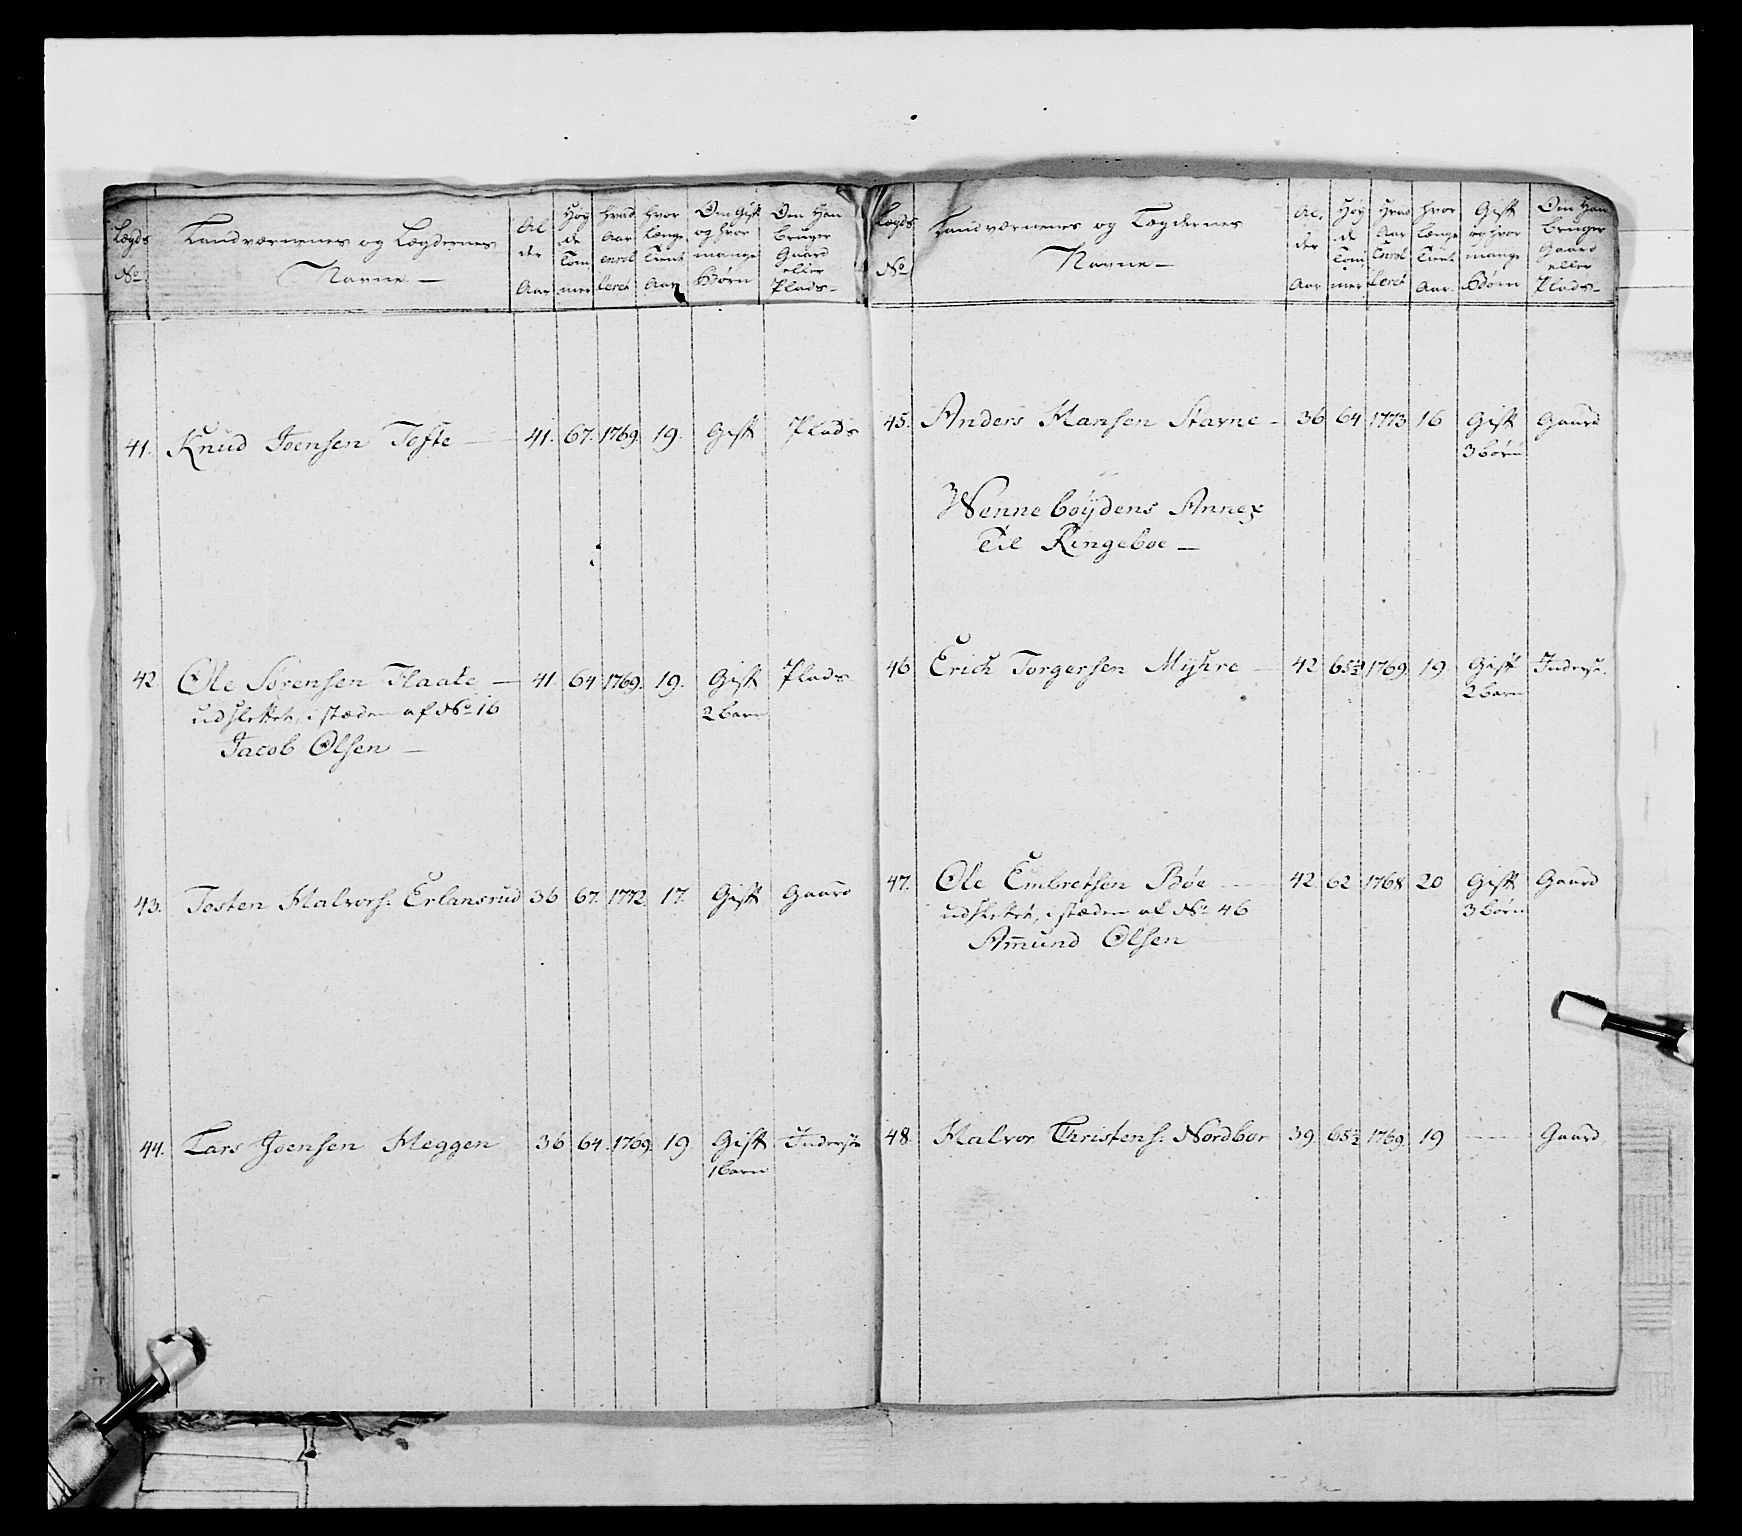 Lægds No. | Landværnenes og Lægdernes Navne — | Al der Aar | Høy de Tom mer | hvad Aar enrol leret | hvor længe Tient Aar | Om Gift og hvor mange Børn | Om Han bruger Gaard eller Plads —
41. Knud Joensen Tofte — 41. 67. 1769. 19. Gift Plads
42. Ole Sørensen Flaate — 41. 64 1769. 19. Gift Plads
udslettet, i stæden af No. 16 2 barn
Jacob Olsen —
43. Tosten Halvors. Erlansrud 36 67. 1772. 17. Gift Gaard
44. Lars Joensen Heggen 36 64. 1769. 19 Gift Inderst
1 barn
Lægds No. | Landværnenes og Lægdernes Navne — | Al, der Aar | Høy de Tom, mer | Hvad Aar Enrol leret | hvor længe Tient Aar. | Gift og hvor mange Børn | Om Han bruger Gaard eller Plads —
45. Anders Hansen Stavne — 36 64 1773 16 Gift Gaard
3 børn
Wennebøydens Annex
Til Ringeboe —
46 Erich Torgersen Myhre — 42 65½ 1769. 19. Gift Inderst.
2 barn
47. Ole Embretsen Bøe — 42 62 1768 20 Gift Gaard
udslettet, i stæden af No. 46 3 børn
Am̄und Olsen
48. Halvor Christens. Nordbor 39 65½ 1769. 19 — Gaard